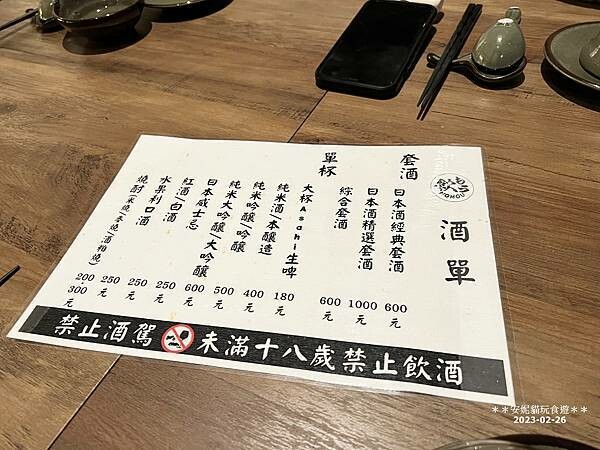 酒單
套酒
日本酒經典套酒 600元
日本酒精選套酒 1000元
綜合套酒 600元
單杯
大杯Asahi生啤 180元
純米酒/本釀造 400元
純米吟釀/吟釀 500元
純米大吟釀/大吟釀 600元
日本威士忌 250元
紅酒/白酒 250元
水果利口酒 250元
燒酎(米燒/麥燒/酒粕燒) 200-300元
禁止酒駕 未滿十八歲禁止飲酒
＊＊安妮貓玩食遊＊＊
2023-02-26